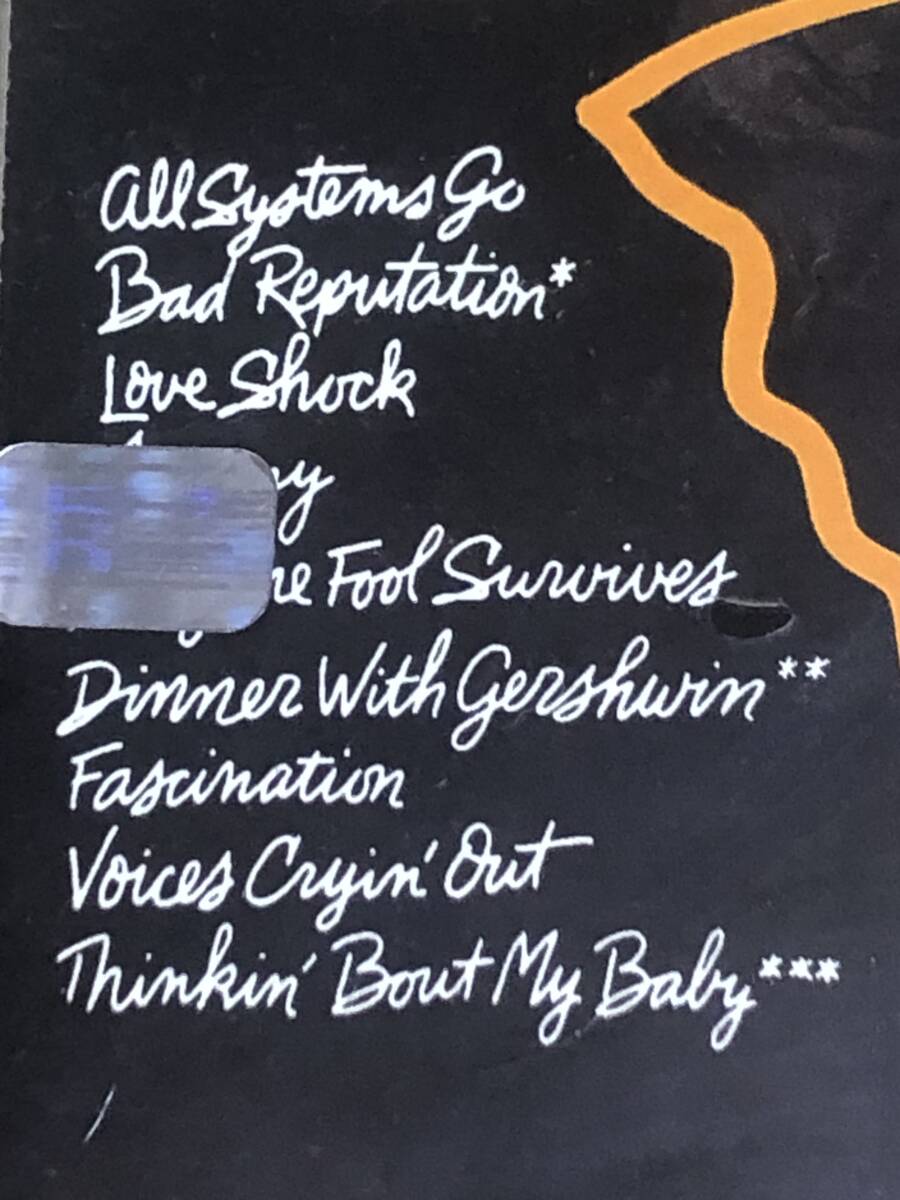 All Systems Go
Bad Reputation*
Love Shock
Fool Survives
Dinner With Gershwin**
Fascination
Voices Cryin' Out
Thinkin' Bout My Baby***